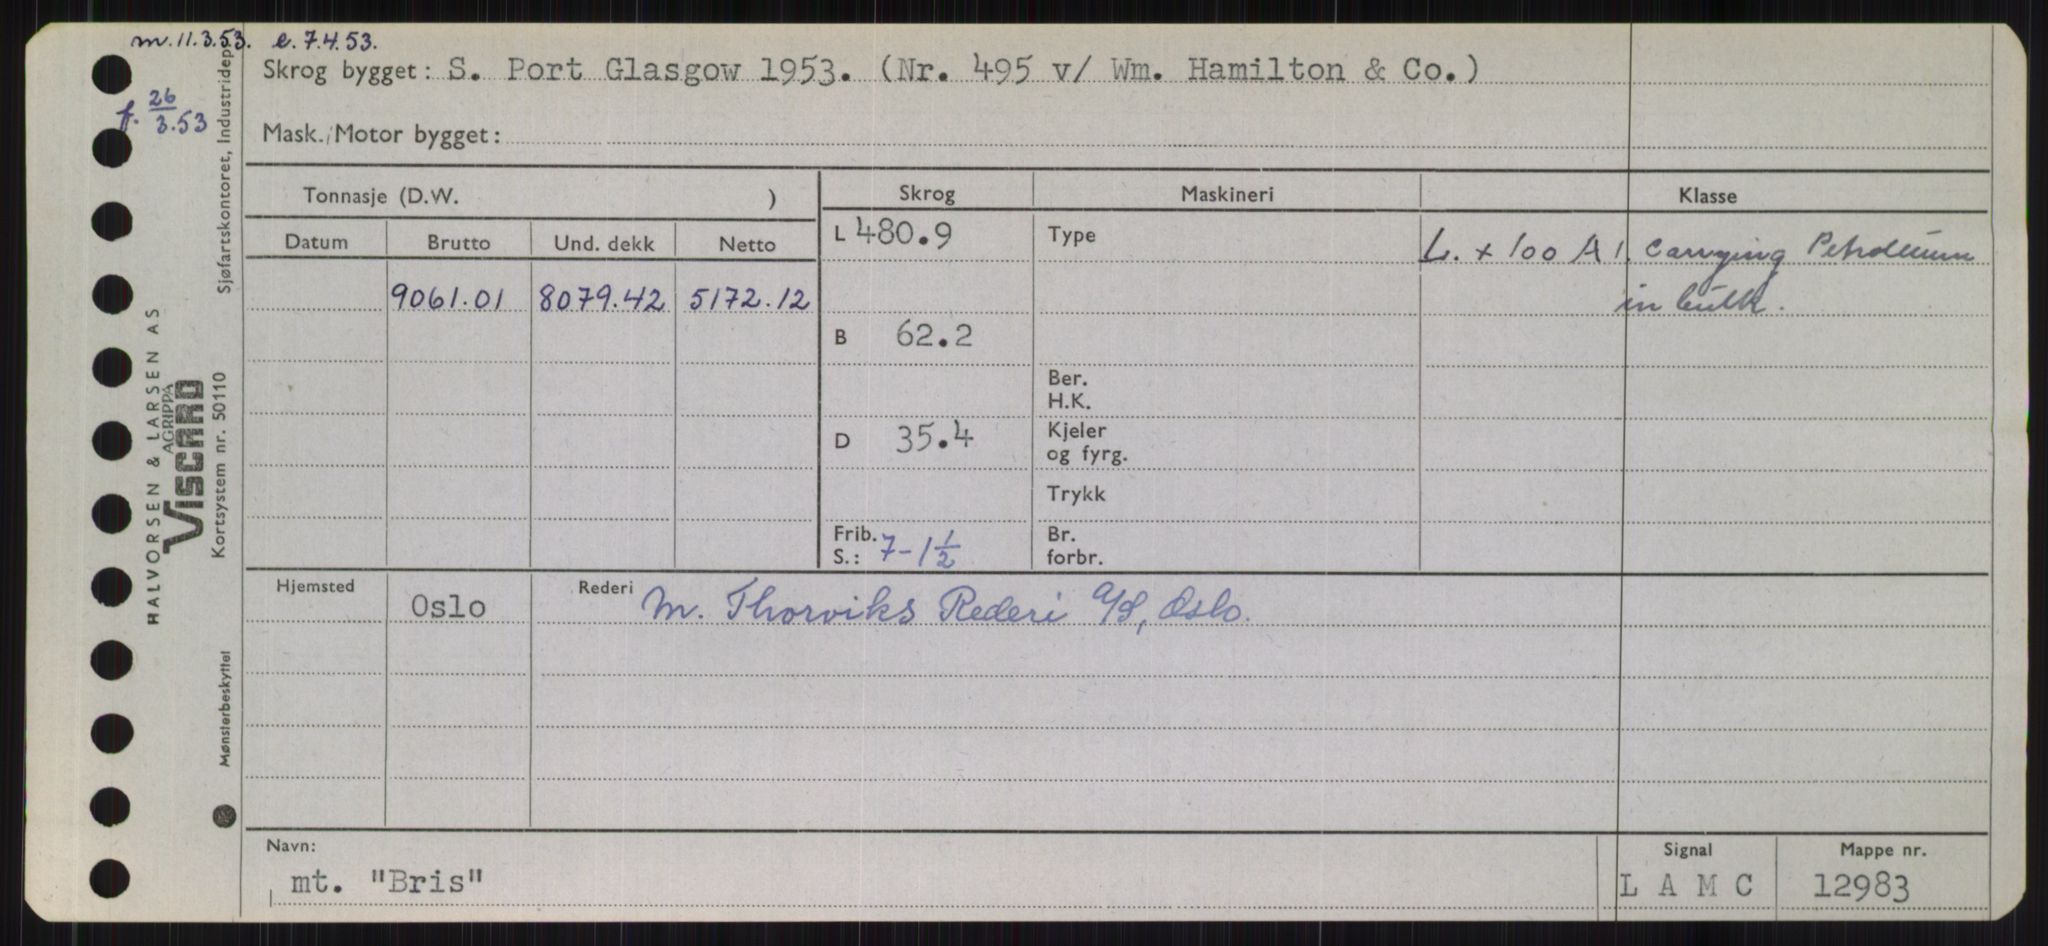 m. 11.3.53. e. 7.4.53.
f. 26/3.53
Skrog bygget: S. Port Glasgow 1953. (Nr. 495 v/ Wm. Hamilton & Co.)
Mask./Motor bygget:
Tonnasje (D.W. )
Skrog Maskineri Klasse
Datum Brutto Und. dekk Netto
L 480.9 Type L. + 100 A 1. Carrying Petroleum
in bulk.
9061.01 8079.42 5172.12
B 62.2
Ber.
H.K.
D 35.4
Kjeler
og fyrg.
Trykk
Frib.
S.: 7-1½
Br.
forbr.
Hjemsted Oslo
Rederi M. Thorviks Rederi A/S, Oslo.
Navn:
mt. "Bris"
Signal
L A M C
Mappe nr.
12983
HALVORSEN & LARSEN AS
AGRIPPA
VISCARD
Kortsystem nr. 50110
Sjøfartskontoret, Industridep
Mønsterbeskyttet